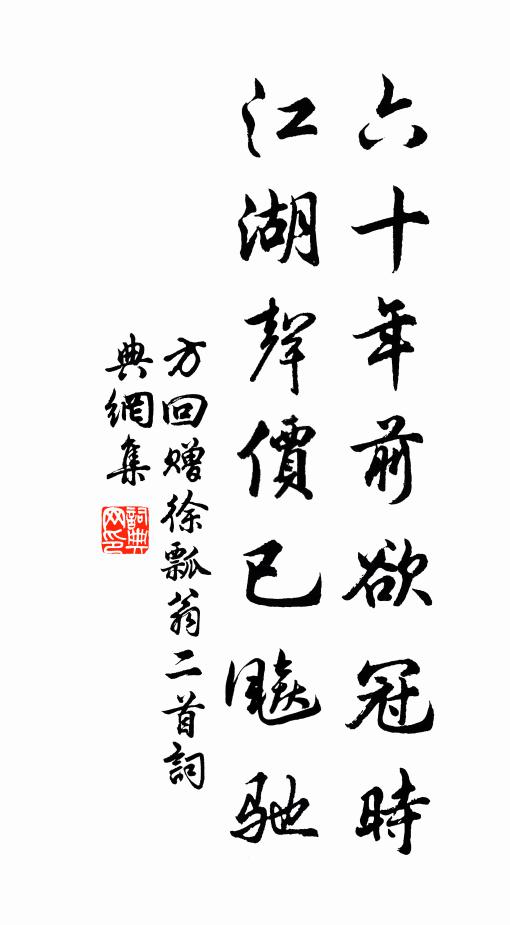 六十年前欲冠時
江湖聲價已飈馳
方回贈徐瓢翁二首詞
典網集
詞典网印